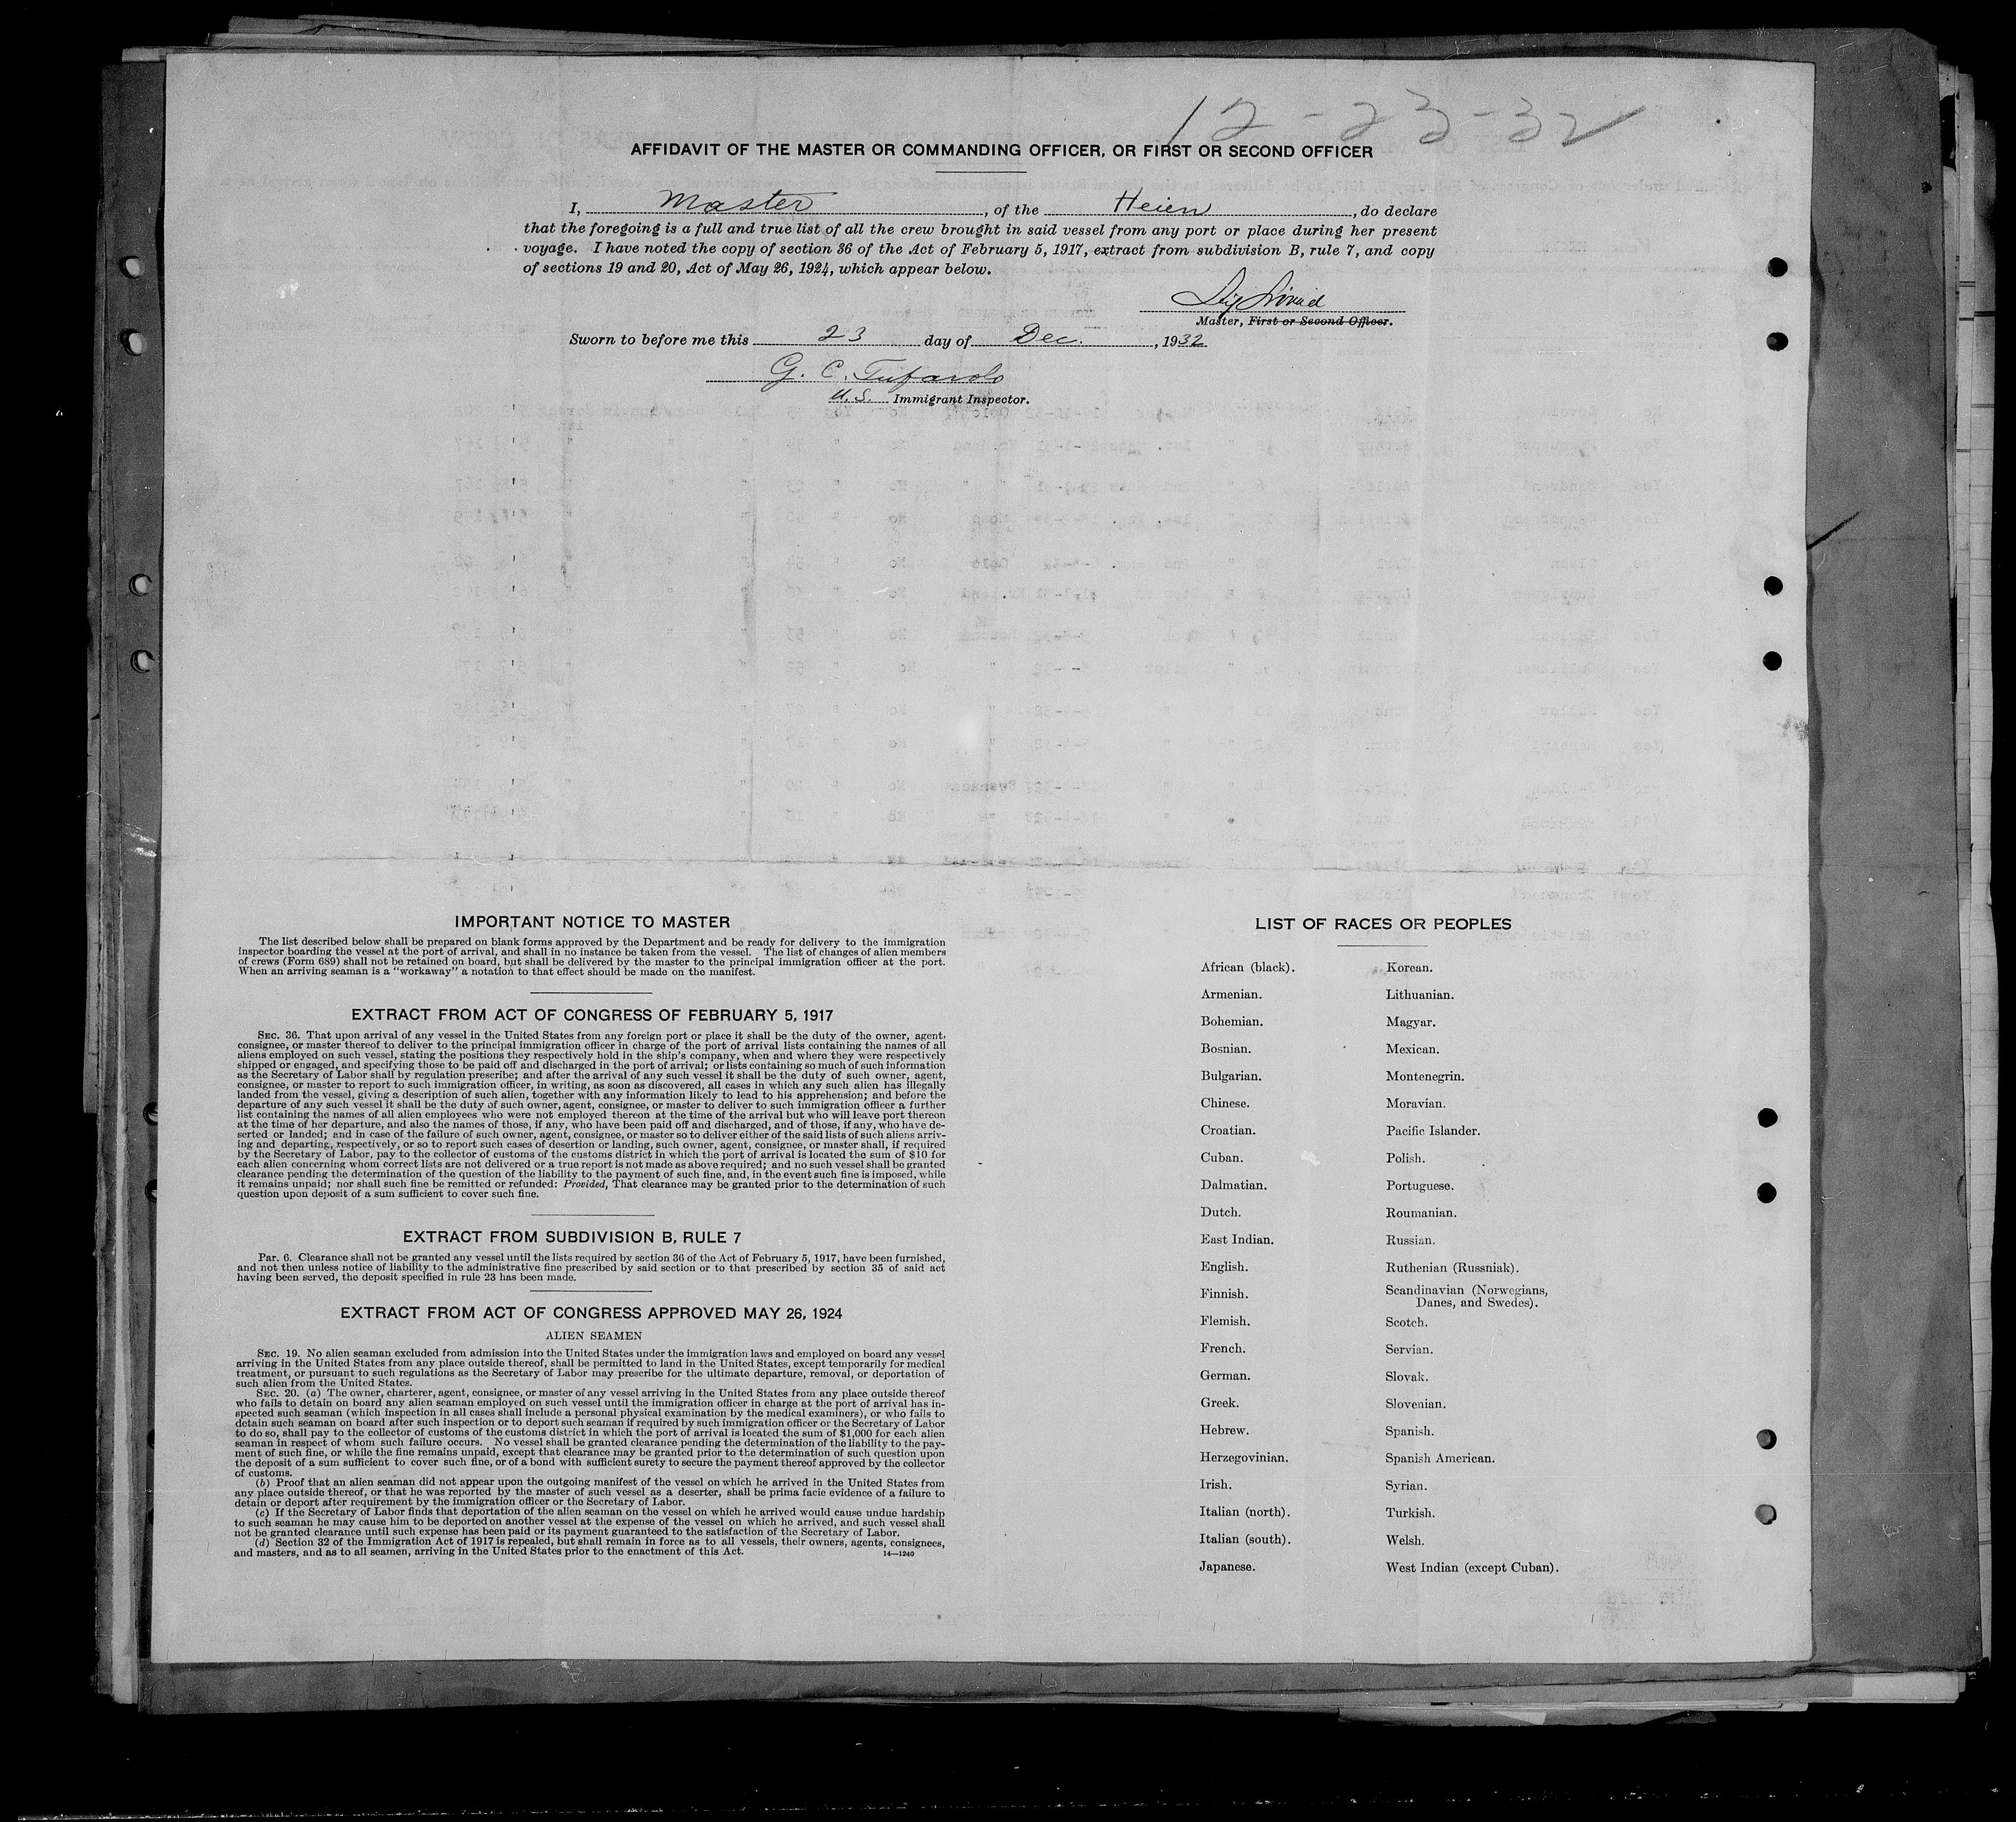 12-23-32
AFFIDAVIT OF THE MASTER OR COMMANDING OFFICER, OR FIRST OR SECOND OFFICER
I, Master, of the Heien, do declare
that the foregoing is a full and true list of all the crew brought in said vessel from any port or place during her present
voyage. I have noted the copy of section 36 of the Act of February 5, 1917, extract from subdivision B, rule 7, and copy
of sections 19 and 20, Act of May 26, 1924, which appear below.
Master, First or Second Officer.
Sworn to before me this 23 day of Dec., 1932
G. C.
U.S. Immigrant Inspector.
IMPORTANT NOTICE TO MASTER
The list described below shall be prepared on blank forms approved by the Department and be ready for delivery to the immigration
inspector boarding the vessel at the port of arrival, and shall in no instance be taken from the vessel. The list of changes of alien members
of crews (Form 689) shall not be retained on board, but shall be delivered by the master to the principal immigration officer at the port.
When an arriving seaman is a "workaway" a notation to that effect should be made on the manifest.
EXTRACT FROM ACT OF CONGRESS OF FEBRUARY 5, 1917
SEC. 36. That upon arrival of any vessel in the United States from any foreign port or place it shall be the duty of the owner, agent,
consignee, or master thereof to deliver to the principal immigration officer in charge of the port of arrival lists containing the names of all
aliens employed on such vessel, stating the positions they respectively hold in the ship's company, when and where they were respectively
shipped or engaged, and specifying those to be paid off and discharged in the port of arrival; or lists containing so much of such information
as the Secretary of Labor shall by regulation prescribe; and after the arrival of any such vessel it shall be the duty of such owner, agent,
consignee, or master to report to such immigration officer, in writing, as soon as discovered, all cases in which any such alien has illegally
landed from the vessel, giving a description of such alien, together with any information likely to lead to his apprehension; and before the
departure of any such vessel it shall be the duty of such owner, agent, consignee, or master to deliver to such immigration officer a further
list containing the names of all alien employees who were not employed thereon at the time of the arrival but who will leave port thereon
at the time of her departure, and also the names of those, if any, who have been paid off and discharged, and of those, if any, who have de-
serted or landed; and in case of the failure of such owner, agent, consignee, or master so to deliver either of the said lists of such aliens arriv-
ing and departing, respectively, or so to report such cases of desertion or landing, such owner, agent, consignee, or master shall, if required
by the Secretary of Labor, pay to the collector of customs of the customs district in which the port of arrival is located the sum of $10 for
each alien concerning whom correct lists are not delivered or a true report is not made as above required; and no such vessel shall be granted
clearance pending the determination of the question of the liability to the payment of such fine, and, in the event such fine is imposed, while
it remains unpaid; nor shall such fine be remitted or refunded: Provided, That clearance may be granted prior to the determination of such
question upon deposit of a sum sufficient to cover such fine.
EXTRACT FROM SUBDIVISION B, RULE 7
Par. 6. Clearance shall not be granted any vessel until the lists required by section 36 of the Act of February 5, 1917, have been furnished,
and not then unless notice of liability to the administrative fine prescribed by said section or to that prescribed by section 35 of said act
having been served, the deposit specified in rule 23 has been made.
EXTRACT FROM ACT OF CONGRESS APPROVED MAY 26, 1924
ALIEN SEAMEN
SEC. 19. No alien seaman excluded from admission into the United States under the immigration laws and employed on board any vessel
arriving in the United States from any place outside thereof, shall be permitted to land in the United States, except temporarily for medical
treatment, or pursuant to such regulations as the Secretary of Labor may prescribe for the ultimate departure, removal, or deportation of
such alien from the United States.
SEC. 20. (a) The owner, charterer, agent, consignee, or master of any vessel arriving in the United States from any place outside thereof
who fails to detain on board any alien seaman employed on such vessel until the immigration officer in charge at the port of arrival has in-
spected such seaman (which inspection in all cases shall include a personal physical examination by the medical examiners), or who fails to
detain such seaman on board after such inspection or to deport such seaman if required by such immigration officer or the Secretary of Labor
to do so, shall pay to the collector of customs of the customs district in which the port of arrival is located the sum of $1,000 for each alien
seaman in respect of whom such failure occurs. No vessel shall be granted clearance pending the determination of the liability to the pay-
ment of such fine, or while the fine remains unpaid, except that clearance may be granted prior to the determination of such question upon
the deposit of a sum sufficient to cover such fine, or of a bond with sufficient surety to secure the payment thereof approved by the collector
of customs.
(b) Proof that an alien seaman did not appear upon the outgoing manifest of the vessel on which he arrived in the United States from
any place outside thereof, or that he was reported by the master of such vessel as a deserter, shall be prima facie evidence of a failure to
detain or deport after requirement by the immigration officer or the Secretary of Labor.
(c) If the Secretary of Labor finds that deportation of the alien seaman on the vessel on which he arrived would cause undue hardship
to such seaman he may cause him to be deported on another vessel at the expense of the vessel on which he arrived, and such vessel shall
not be granted clearance until such expense has been paid or its payment guaranteed to the satisfaction of the Secretary of Labor.
(d) Section 32 of the Immigration Act of 1917 is repealed, but shall remain in force as to all vessels, their owners, agents, consignees,
and masters, and as to all seamen, arriving in the United States prior to the enactment of this Act.
14—1240
LIST OF RACES OR PEOPLES
African (black).
Armenian.
Bohemian.
Bosnian.
Bulgarian.
Chinese.
Croatian.
Cuban.
Dalmatian.
Dutch.
East Indian.
English.
Finnish.
Flemish.
French.
German.
Greek.
Hebrew.
Herzegovinian.
Irish.
Italian (north).
Italian (south).
Japanese.
Korean.
Lithuanian.
Magyar.
Mexican.
Montenegrin.
Moravian.
Pacific Islander.
Polish.
Portuguese.
Roumanian.
Russian.
Ruthenian (Russniak).
Scandinavian (Norwegians,
Danes, and Swedes).
Scotch.
Servian.
Slovak.
Slovenian.
Spanish.
Spanish American.
Syrian.
Turkish.
Welsh.
West Indian (except Cuban).